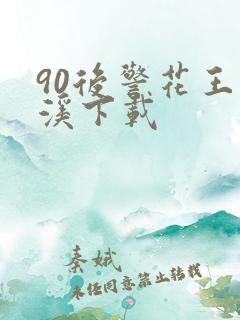 90後警花王
溪下載
秦娥
未经同意禁止转载